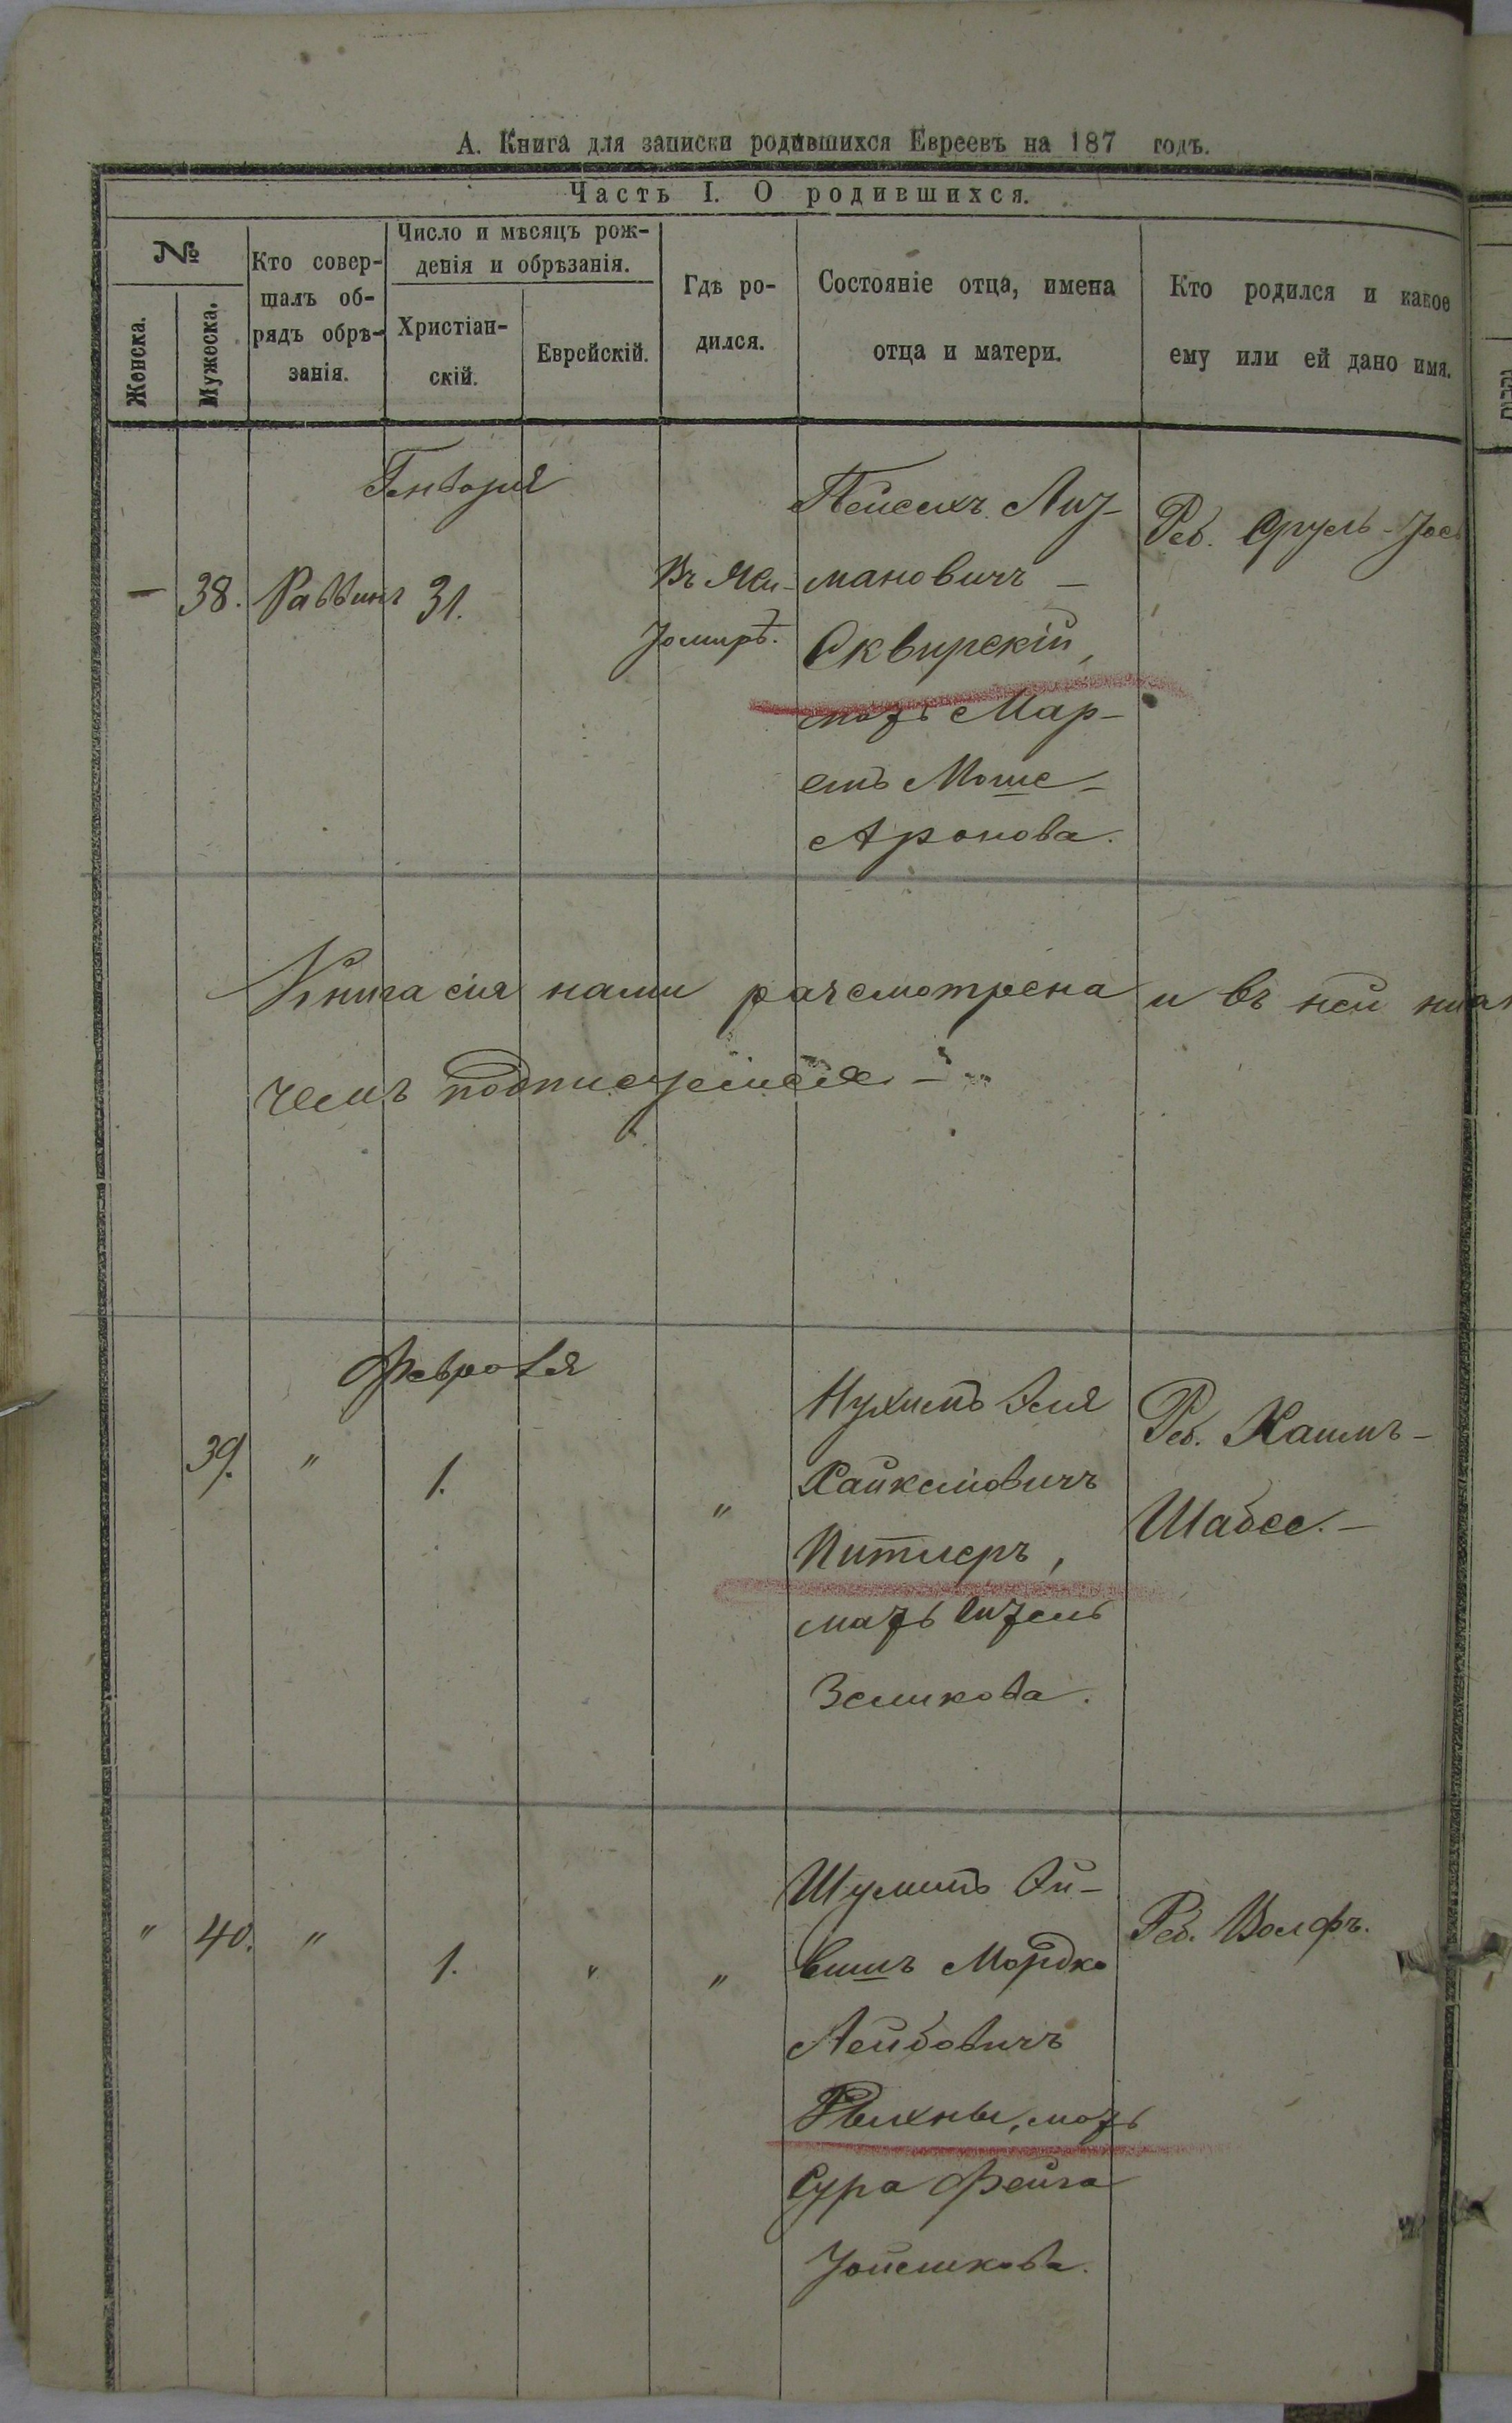 А. Книга для записки родившихся Евреевъ на 187 годъ.
Часть I. О родившихся.
№
Женска.
Мужеска.
Кто совер-
шалъ об-
рядъ обрѣ-
занія.
Число и мѣсяцъ рож-
денія и обрѣзанія.
Христіан-
скій.
Еврейскій.
Гдѣ ро-
дился.
Состояніе отца, имена
отца и матери.
Кто родился и какое
ему или ей дано имя.
Генваря
— 38. Раввинъ 31.
Въ Жи-
томирѣ.
Пейсахъ Лиз-
мановичъ —
Сквирскій,
мать Мар-
емъ Моше-
Аронова.
Реб. Сруль-Іос
Книга сія нами разсмотрена и въ ней
чемъ подписуемся —
Февраля
39. " 1. "
Нухимъ Эля
Хайкелювичъ
Питлеръ,
мать Сизель
Зеликова.
Реб. Хаимъ-
Шабсе. —
" 40. " 1. " "
Шулимъ Ай-
Мордко
Лейбовичъ
мать
Сура Фейга
Реб. Волфъ.